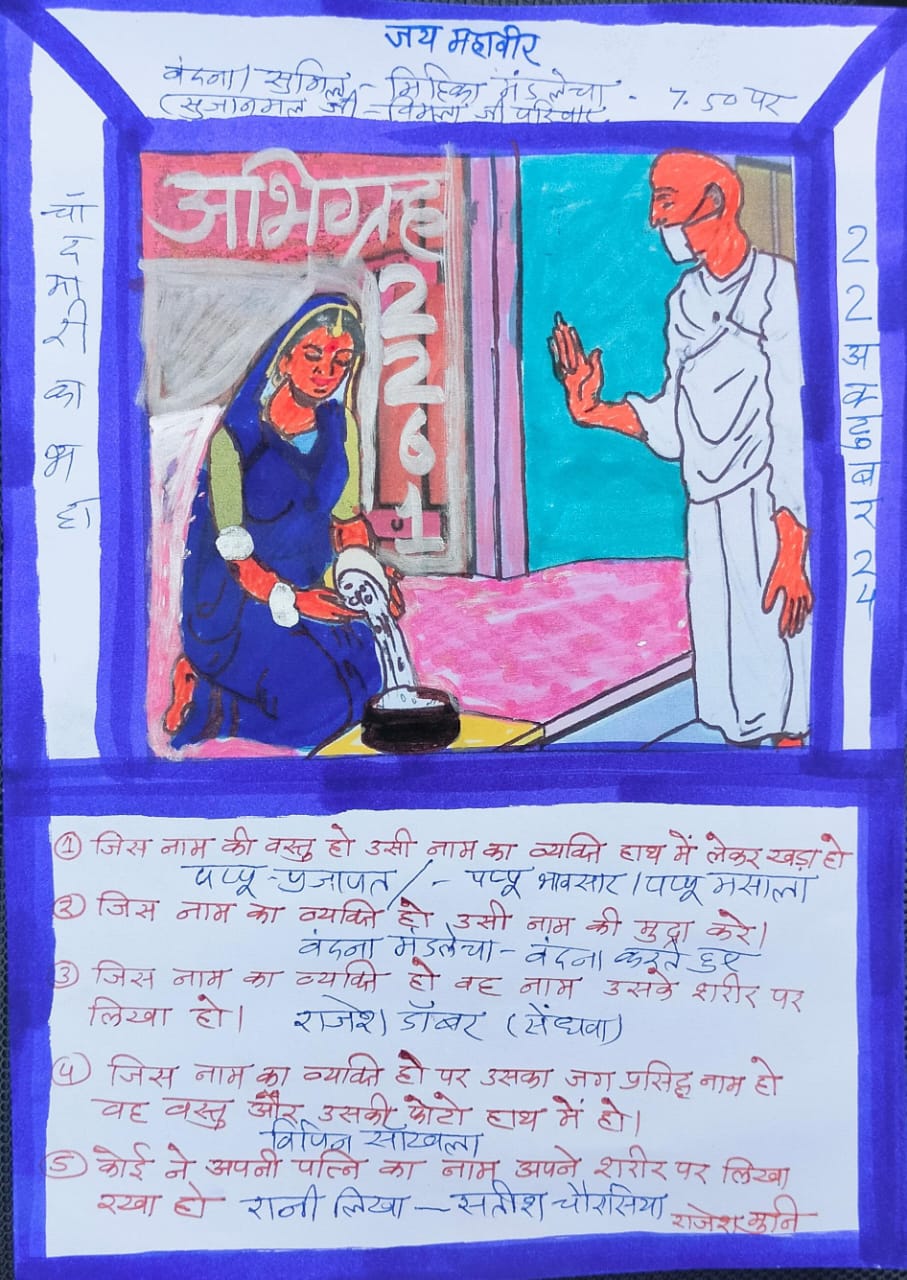 जय महावीर
वंदना / सुनिल - मिहिका मंडलेचा - 7.50 पर
(सुजानमल जी - विमला जी परिवार
चाँदमारी का
22 अक्टूबर 24
अभिग्रह
2261
① जिस नाम की वस्तु हो उसी नाम का व्यक्ति हाथ में लेकर खड़ा हो
पप्पू प्रजापत / - पप्पू भावसार / पप्पू मसाला
② जिस नाम का व्यक्ति हो उसी नाम की मुद्रा करे।
वंदना मंडलेचा - वंदना करते हुए
③ जिस नाम का व्यक्ति हो वह नाम उसके शरीर पर
लिखा हो। राजेश डॉबर (सेंधवा)
④ जिस नाम का व्यक्ति हो पर उसका जग प्रसिद्ध नाम हो
वह वस्तु और उसकी फोटो हाथ में हो।
विपिन साँखला
⑤ कोई ने अपनी पत्नि का नाम अपने शरीर पर लिखा
रखा हो रानी लिखा - सतीश चौरसिया राजेश मुनि